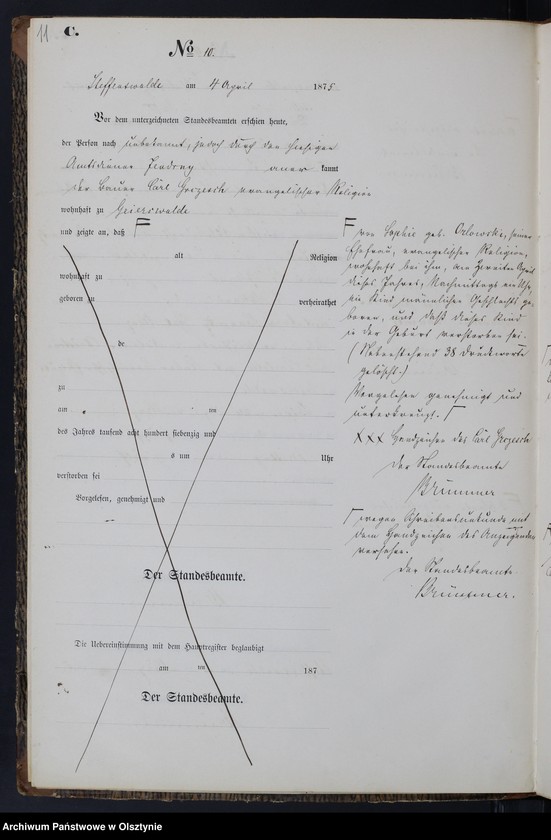 11
C.
No 10.
Steffenswalde am 4 April 1875
Vor dem unterzeichneten Standesbeamten erschien heute,
der Person nach unbekannt, jedoch durch den hiesigen
Amtsdiener aner kannt
der Bauer Carl evangelischer Religion
wohnhaft zu Geierswalde
und zeigte an, daß Γ
alt Religion
wohnhaft zu
geboren zu verheirathet
de
zu
am um
des Jahres tausend acht hundert siebenzig und
s um Uhr
verstorben sei
Vorgelesen, genehmigt und
Der Standesbeamte.
Die Uebereinstimmung mit dem Hauptregister beglaubigt
am ten 187
Der Standesbeamte.
Γ von Sophie geb. Orlowski, seiner
Ehefrau, evangelischer Religion,
wohnhaft bei ihm, am zweiten April
dieses Jahres, Nachmittags um Uhr
ein Kind männlichen Geschlechts ge-
boren, und daß dieses Kind
in der Geburt verstorben sei.
(Nebenstehend 38 Druckworte
gelöscht.)
Vorgelesen genehmigt und
unterkreuzt. Γ
XXX Handzeichen des Carl
Der Standesbeamte
Brümmer
Γ wegen Schreibensunkunde mit
dem Handzeichen des Anzeigenden
versehen.
Der Standesbeamte
Brümmer.
Archiwum Państwowe w Olsztynie